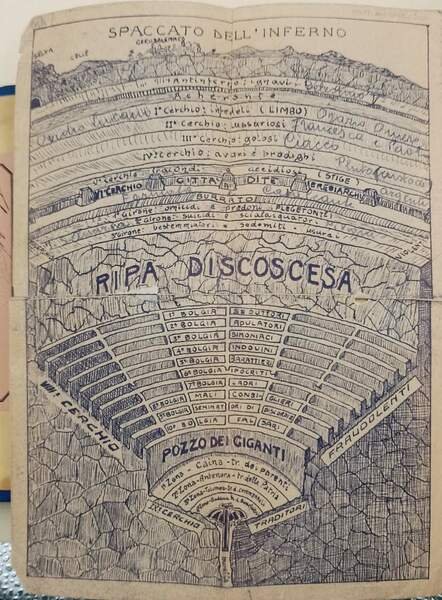 SPACCATO DELL'INFERNO
SELVA
COLLE
GERUSALEMME
Antinferno: ignavi
Acheronte
I° Cerchio: infedeli (LIMBO)
II° Cerchio: lussuriosi
Francesca e
III° Cerchio: golosi
Ciacco
IV° Cerchio: avari e prodighi
V° Cerchio iracondi accidiosi (STIGE)
VI CERCHIO CITTÀ DITE ERESIARCHI
BURRATO
1° Girone omicidi e predoni FLEGETONTE
2° Girone: suicidi e scialacquatori
3° Girone bestemmiatori e sodomiti usurai
RIPA DISCOSCESA
1ª BOLGIA SEDUTTORI
2ª BOLGIA ADULATORI
3ª BOLGIA SIMONIACI
4ª BOLGIA INDOVINI
5ª BOLGIA BARATTIERI
6ª BOLGIA IPOCRITI
7ª BOLGIA LADRI
8ª BOLGIA MALI CONSIGLIERI
9ª BOLGIA SEMINATORI DI DISCORDIE
10ª BOLGIA FALSARI
VIII CERCHIO
FRAUDOLENTI
POZZO DEI GIGANTI
1ª Zona - Caina - tr. dei parenti
2ª Zona - Antenora - tr. della Patria
3ª Zona - Tolomea
IX CERCHIO
TRADITORI